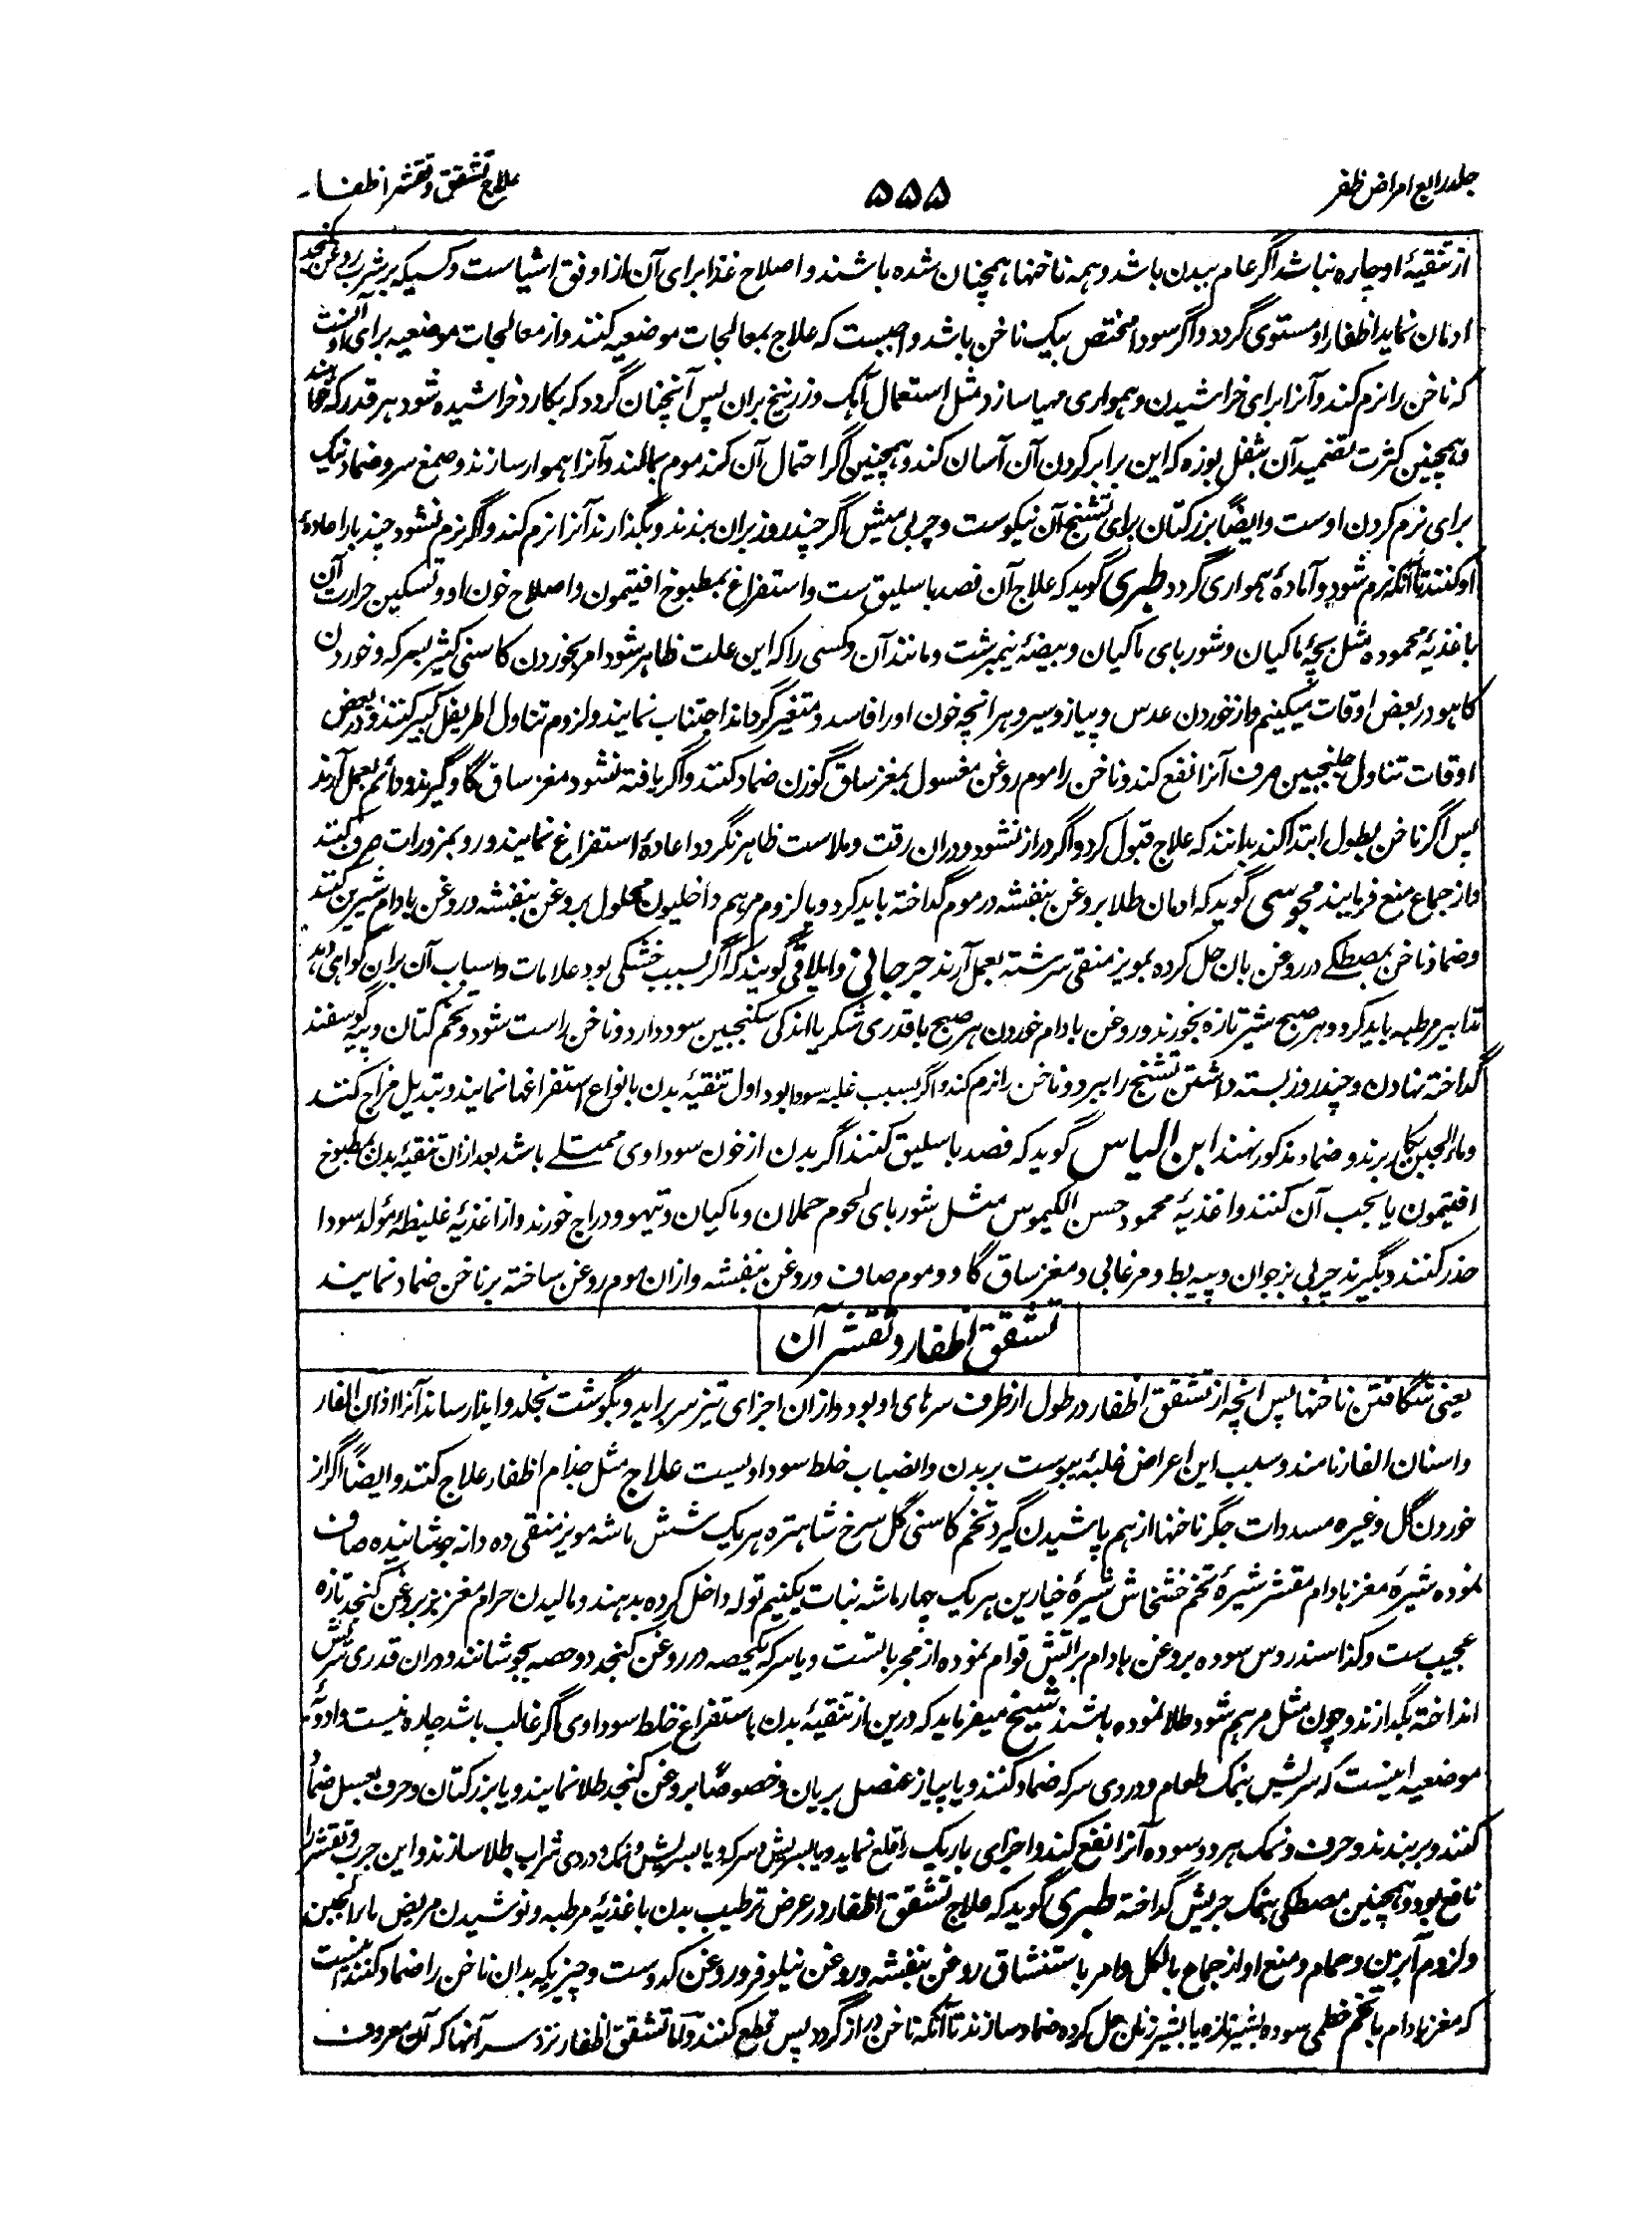 جلد رابع امراض ظفر
۵۵۵
علاج تشقق و تقشر اظفار
از تنقیهٔ او چاره نباشد اگر عام ببدن باشد و همه ناخنها همچنان شده باشند و اصلاح غذا برای آن از اوفق اشیاست و کسیکه بر شرب روغن کنجد
ادمان نماید اظفار او مستوی گردد و اگر سودا مختص بیک ناخن باشد واجبست که علاج بمعالجات موضعیه کنند و از معالجات موضعیه برای او آنست
که ناخن را نرم کند و آنرا برای خراشیدن و همواری مهیا سازد مثل استعمال آهک و زرنیخ بران پس آنچنان گردد که بکارد خراشیده شود هر قدر که خواهند
و همچنین کثرت تضمید آن بثفل بوزه که این برابر کردن آن آسان کند و همچنین اگر احتمال آن کند موم بمالند و آنرا هموار سازند و صمغ سرو ضماد نیک
برای نرم کردن اوست و ایضاً بزر کتان برای تشنج آن نیکوست و چربی میش اگر چند روز بران بندند و بگذارند آنرا نرم کند و اگر نرم نشود چند بار اعادهٔ
او کنند تا آنکه نرم شود و آمادهٔ همواری گردد طبری گوید که علاج آن فصد باسلیق ست و استفراغ بمطبوخ افتیمون و اصلاح خون او و تسکین حرارت آن
باغذیهٔ محموده مثل بچهٔ ماکیان و شوربای ماکیان و بیضهٔ نیمبرشت و مانند آن و کسی را که این علت ظاهر شود امر بخوردن کاسنی کثیر بسرکه و خوردن
کاهو در بعض اوقات میکنیم و از خوردن عدس و پیاز و سیر و هر انچه خون او را فاسد و متغیر گرداند اجتناب نمایند و لزوم تناول اطریفل کبیر کنند و در بعض
اوقات تناول جلنجبین صرف آنرا نفع کند و ناخن را موم روغن مغسول بمغز ساق گوزن ضماد کنند و اگر یافته نشود مغز ساق گاو گیرند و دائم بعمل آرند
پس اگر ناخن بطول ابتدا کند بدانند که علاج قبول کرد و اگر دراز نشود و دران رقت و ملاست ظاهر نگردد اعادهٔ استفراغ نمایند و رو بمزورات صرف کنند
و از جماع منع فرمایند مجوسی گوید که ادمان طلا بروغن بنفشه در موم گداخته باید کرد و یا لزوم مرهم داخلیون محلول بروغن بنفشه و روغن بادام شیرین کنند
و ضماد ناخن بمصطکے در روغن بان حل کرده بمویز منقی سرشته بعمل آرند جرجانی و ایلاقی گویند که اگر بسبب خشکی بود علامات و اسباب آن بران گواهی دهد
تدابیر مرطبه باید کرد و هر صبح شیر تازه بخورند و روغن بادام خوردن هر صبح باقدری شکر یا اندکی سکنجبین سود دارد و ناخن راست شود و تخم کتان و پیه گوسفند
گداخته نهادن و چند روز بسته داشتن تشنج را ببرد و ناخن را نرم کند و اگر بسبب غلبه سودا بود اول تنقیهٔ بدن بانواع استفراغها نمایند و تبدیل مزاج کنند
و ماء الجبن بکار برند و ضماد مذکور نهند ابن الیاس گوید که فصد باسلیق کنند اگر بدن از خون سوداوی ممتلے باشد بعد ازان تنقیهٔ بدن بمطبوخ
افتیمون یا بحب آن کنند و اغذیهٔ محمود حسن الکیموس مثل شوربای لحوم حملان و ماکیان و تیهو و دراج خورند و از اغذیهٔ غلیظهٔ مولد سودا
حذر کنند و بگیرند چربی بز جوان و پیه بط و مرغابی و مغز ساق گاو و موم صاف و روغن بنفشه و ازان موم روغن ساخته بر ناخن ضماد نمایند
تشقق اظفار و تقشر آن
یعنی شگافتن ناخنها پس انچه از تشقق اظفار در طول از طرف سرهای او بود و ازان اجزای تیز سر براید و بگوشت بخلد و ایذا رساند آنرا اذان الفار
و اسنان الفار نامند و سبب این اعراض غلبهٔ یبوست بر بدن و انصباب خلط سوداویست علاج مثل جذام اظفار علاج کنند و ایضاً اگر از
خوردن گل و غیره مسددات جگر ناخنها از هم پاشیدن گیرد تخم کاسنی گل سرخ شاهتره هر یک شش ماشه مویز منقی ده دانه جوشانیده صاف
نموده شیرهٔ مغز بادام مقشر شیرهٔ تخم خشخاش شیرهٔ خیارین هر یک چهار ماشه نبات یکنیم توله داخل کرده بدهند و مالیدن حرام مغز بز بروغن کنجد تازه
عجیب ست و کذا سندروس سوده بروغن بادام بر آتش قوام نموده از مجرباتست و یا سرکه یکحصه در روغن کنجد دو حصه بجوشانند و دران قدری سریش
انداخته بگدازند و چون مثل مرهم شود طلا نموده باشند شیخ میفرماید که درین از تنقیهٔ بدن باستفراغ خلط سوداوی اگر غالب باشد چاره نیست و ادویهٔ
موضعیه اینست که سریش بنمک طعام و دردی سرکه ضماد کنند و یا پیاز عنصل بریان و خصوصاً بروغن کنجد طلا نمایند و یا بزر کتان و حرف بعسل ضماد
کنند و بربندند و حرف و نمک هر دو سوده آنرا نفع کند و اجزای باریک را قلع نماید و یا بسریش و سرکه و یا بسریش و نمک و دردی شراب طلا سازند و این جرب و تقشر را
نافع بود و همچنین مصطکی بنمک جریش گداخته طبری گوید که علاج تشقق اظفار در عرض ترطیب بدن باغذیهٔ مرطبه و نوشیدن مریض ماء الجبن
و لزوم آبزن و حمام و منع او از جماع بالکل و امر باستنشاق روغن بنفشه و روغن نیلوفر و روغن کدوست و چیزیکه بدان ناخن را ضماد کنند اینست
که مغز بادام با تخم خطمی سوده بشیر تازه یا بشیر زنان حل کرده ضماد سازند تا آنکه ناخن دراز گردد پس قطع کنند و اما تشقق اظفار نزد سر آنها که آن معروف